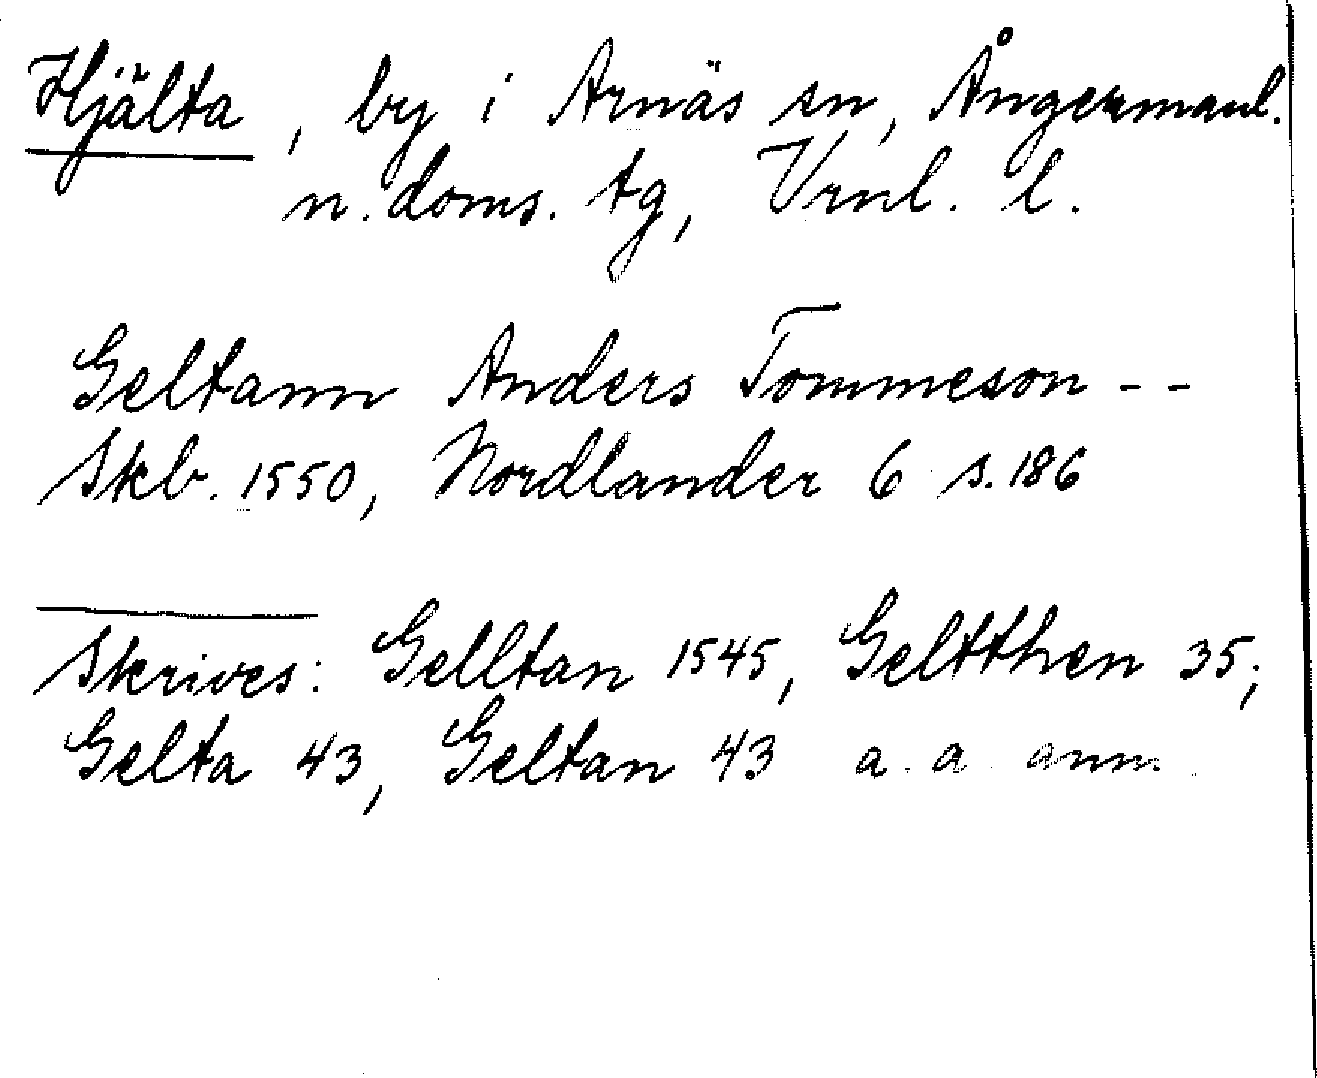 Hjälta, by i Arnäs sn, Ångermanl.
n. doms. tg, Vrnl. l.
Geltann Anders Tommeson - -
Skb. 1550, Nordlander 6 s. 186
Skrives: Gelltan 1545, Geltthen 35;
Gelta 43, Geltan 43 a. a. anm.